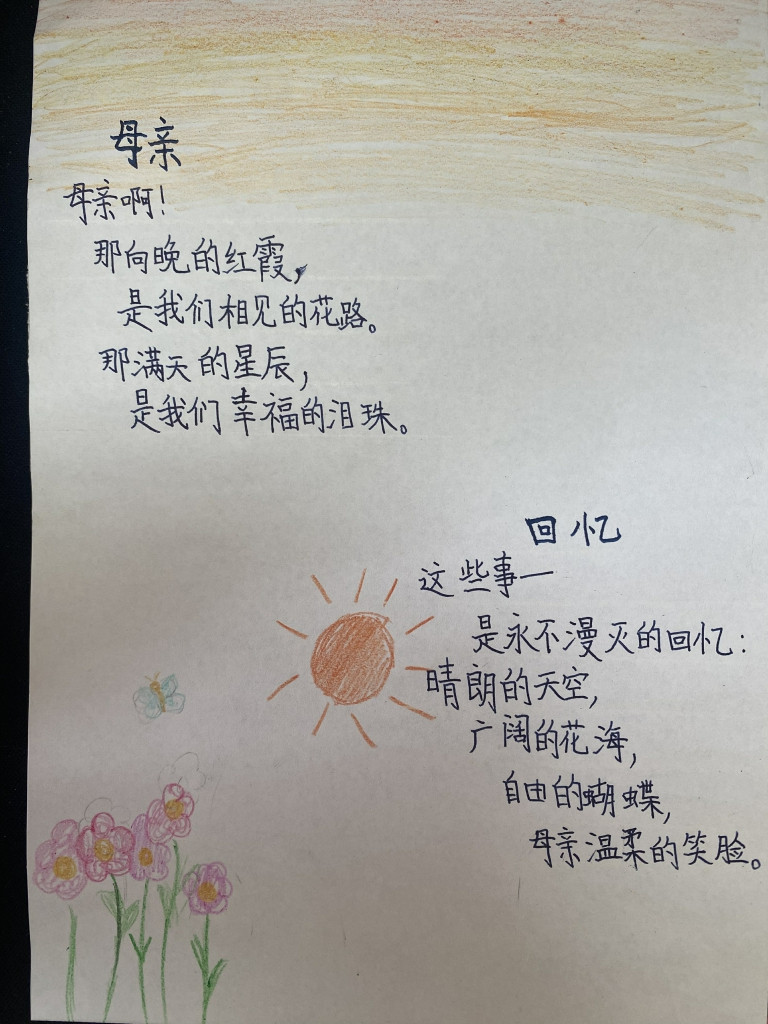 母亲
母亲啊!
那向晚的红霞,
是我们相见的花路。
那满天的星辰,
是我们幸福的泪珠。
回忆
这些事—
是永不漫灭的回忆:
晴朗的天空,
广阔的花海,
自由的蝴蝶,
母亲温柔的笑脸。